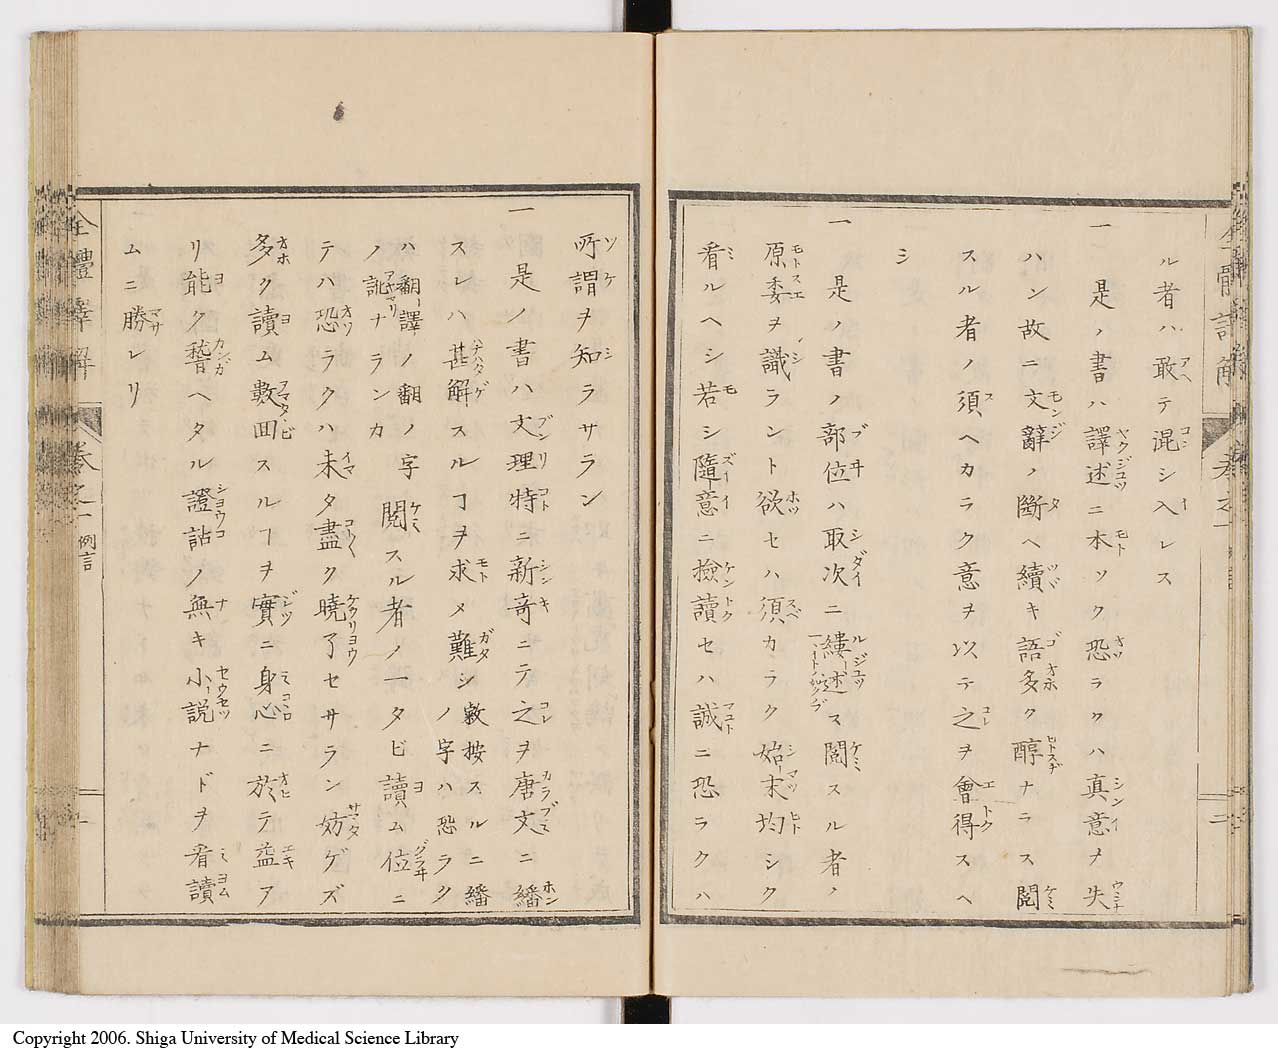 ル者ハ敢テ混シ入レス
一 是ノ書ハ譯述ニ本ツク恐ラクハ真意ヲ失
ハン故ニ文辭ノ斷ヘ續キ語多ク醇ナラス閲
スル者ノ須ヘカラク意ヲ以テ之ヲ會得スヘ
シ
一 是ノ書ノ部位ハ取次ニ縷述ス閲スル者ノ
原委ヲ識ラント欲セハ須カラク始末均シク
看ルヘシ若シ隨意ニ撿讀セハ誠ニ恐ラクハ
所謂ヲ知ラサラン
一 是ノ書ハ文理特ニ新奇ニテ之ヲ唐文ニ繙
スレハ甚解スルヿヲ求メ難シ
敎按スルニ繙
ノ字ハ恐ラク
ハ翻譯ノ翻ノ字
ノ訛ナランカ
閲スル者ノ一タビ讀ム位ニ
テハ恐ラクハ未タ盡ク曉了セサラン妨ゲズ
多ク讀ム數回スルヿヲ實ニ身心ニ於テ益ア
リ能ク稽ヘタル證詁ノ無キ小説ナドヲ看讀
ムニ勝レリ
全體譯解
卷之一
例言
二
Copyright 2006. Shiga University of Medical Science Library